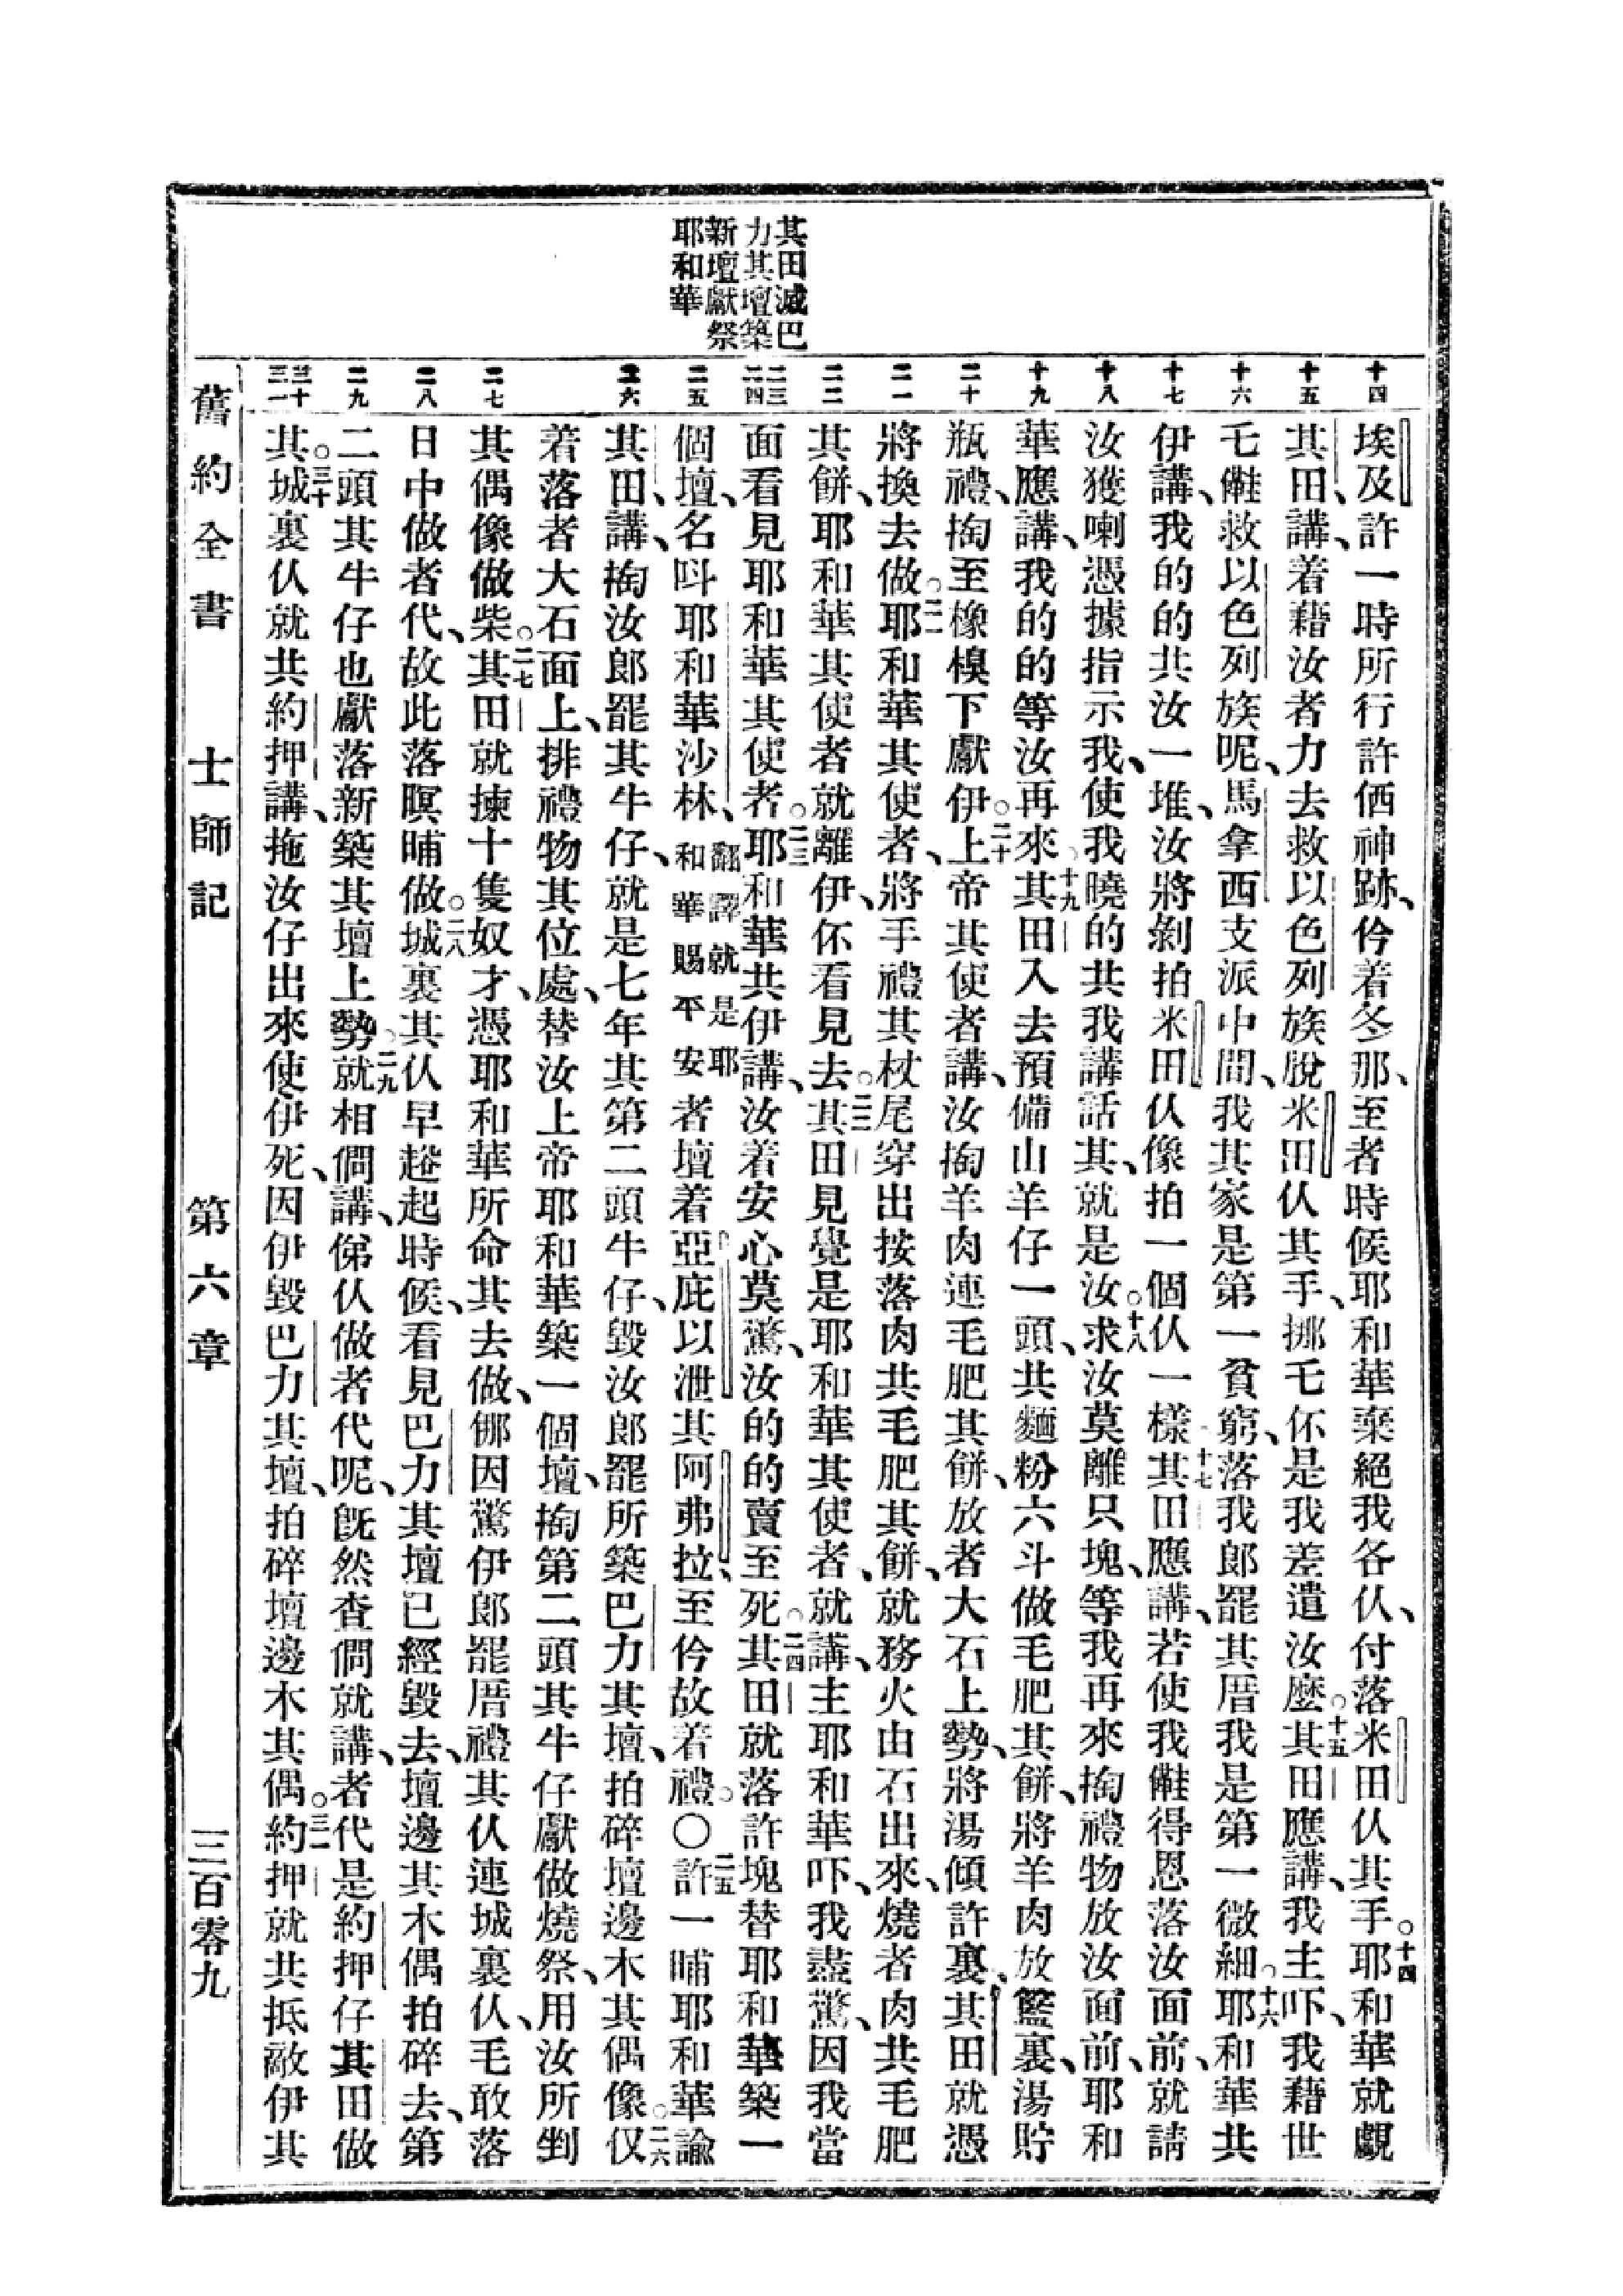 其田滅巴
力其壇築
新壇獻祭
耶和華
十四
十五
十六
十七
十八
十九
二十
二一
二二
二三
二四
二五
二六
二七
二八
二九
三十
三一
埃及許一時所行許偌神跡、仱着冬那、至者時候耶和華棄絕我各仈、付落米田仈其手。十四耶和華就覷
其田、講、着藉汝者力去救以色列族脫米田仈其手、挪毛伓是我差遣汝麽。十五其田應講、我主吓、我藉世
乇㑚救以色列族呢、馬拿西支派中間、我其家是第一貧窮、落我郎罷其厝我是第一微細。十六耶和華共
伊講、我的的共汝一堆、汝將剝拍米田仈像拍一個仈一樣。十七其田應講、若使我㑚得恩落汝面前、就請
汝獲喇憑據指示我、使我曉的共我講話其、就是汝。十八求汝莫離只塊、等我再來掏禮物放汝面前、耶和
華應講、我的的等汝再來。十九其田入去預備山羊仔一頭、共麵粉六斗做毛肥其餅、將羊肉放籃裏、湯貯
瓶禮、掏至橡模下獻伊。二十上帝其使者講、汝掏羊肉連毛肥其餅、放者大石上勢、將湯傾許裏、其田就憑
將換去做。二一耶和華其使者、將手禮其杖尾穿出按落肉共毛肥其餅、就務火由石出來、燒者肉共毛肥
其餅、耶和華其使者就離伊、伓看見去。二二其田見覺是耶和華其使者、就講、主耶和華吓、我盡驚、因我當
面看見耶和華其使者。二三耶和華共伊講、汝着安心莫驚、汝的的賣至死。二四其田就落許塊替耶和華築一
個壇、名呌耶和華沙林、翻譯就是耶和華賜平安者壇着亞庇以泄其阿弗拉、至仱故着禮。○二五許一晡耶和華諭
其田、講、掏汝郎罷其牛仔、就是七年其第二頭牛仔、毀汝郎罷所築巴力其壇、拍碎壇邊木其偶像。二六仅
着落者大石面上、排禮物其位處、替汝上帝耶和華築一個壇、掏第二頭其牛仔獻做燒祭、用汝所剉
其偶像做柴。二七其田就揀十隻奴才、憑耶和華所命其去做、倻因驚伊郎罷厝禮其仈連城裏仈、毛敢落
日中做者代、故此落暝晡做。二八城裏其仈早趒起時候、看見巴力其壇已經毀去、壇邊其木偶拍碎去、第
二頭其牛仔也獻落新築其壇上勢。二九就相僩講、俤仈做者代呢、旣然查僩就講、者代是約押仔其田做
其。三十城裏仈就共約押講、拖汝仔出來使伊死、因伊毀巴力其壇、拍碎壇邊木其偶。三一約押就共抵敵伊其
舊約全書　士師記　第六章　三百零九